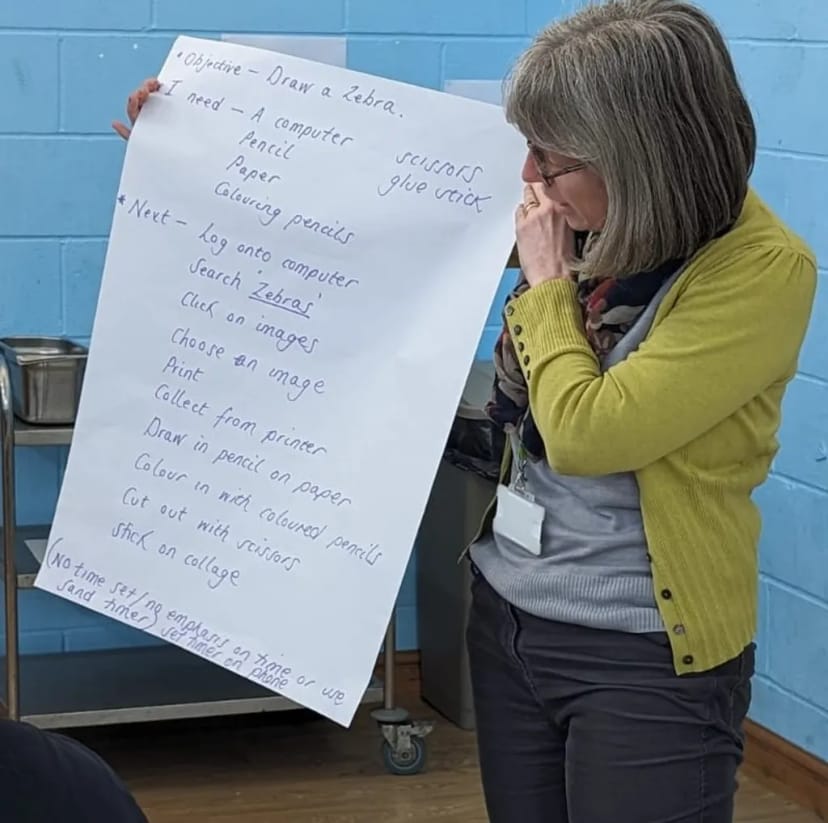 * Objective - Draw a Zebra.
I need - A computer
Pencil
Paper
Colouring pencils
scissors
glue stick
* Next - Log onto computer
Search 'Zebras'
Click on images
Choose an image
Print
Collect from printer
Draw in pencil on paper
Colour in with coloured pencils
Cut out with scissors
stick on collage
(No time set/no emphasis on time or use
sand timer) set timer on phone